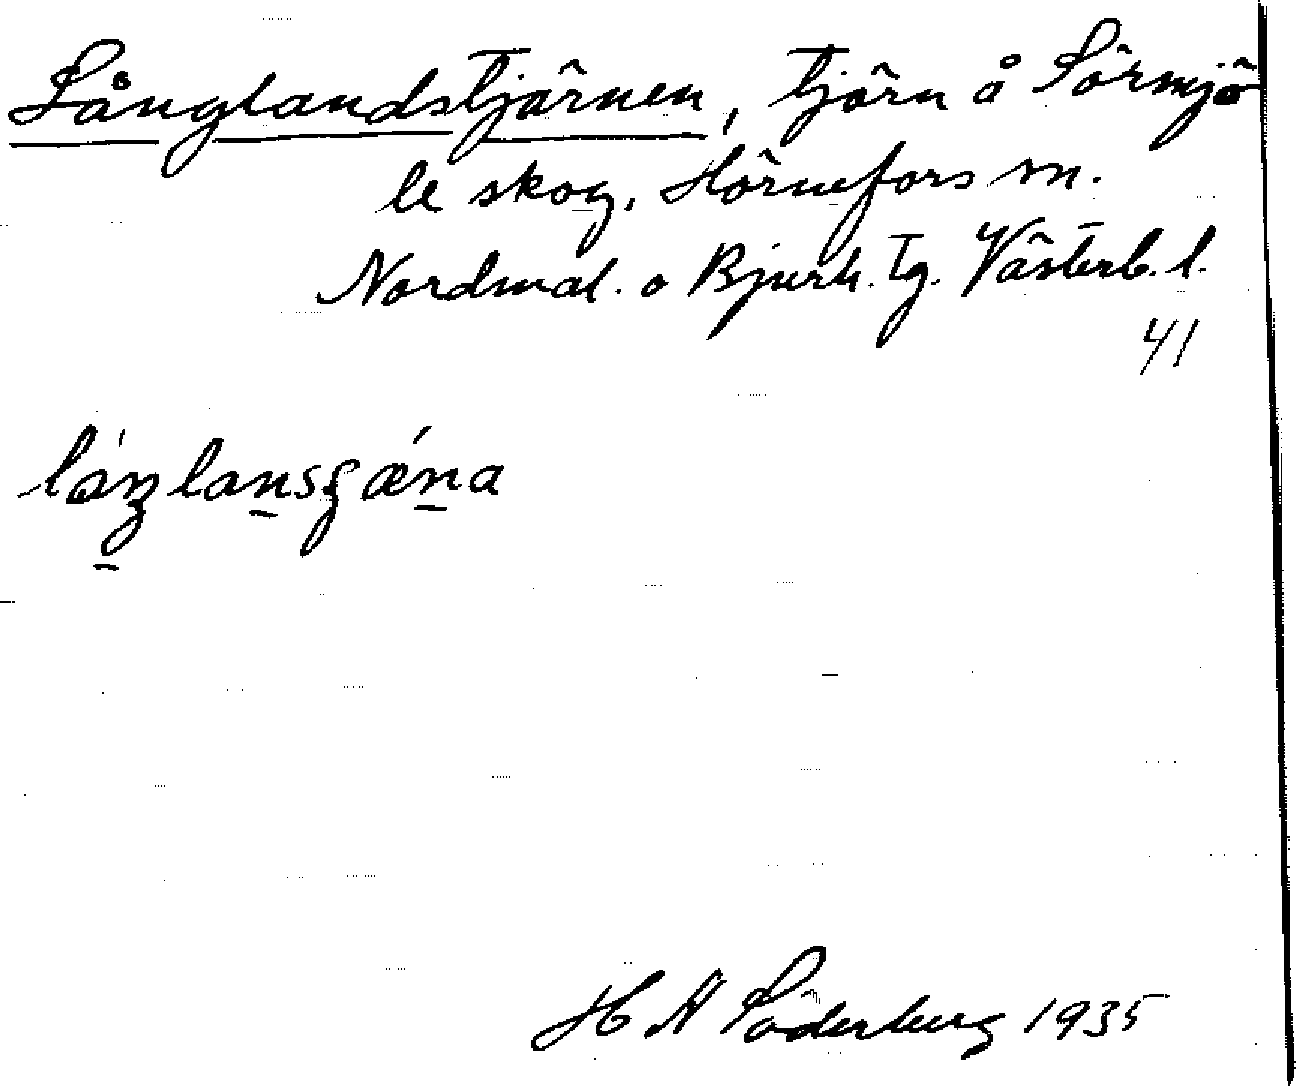 Långlandstjärnen, tjärn å Sörmjö
le skog, Hörnefors sn.
Nordmal. o Bjurh. tg. Västerb. l.
41
låŋlansʃæna
H A Söderberg 1935